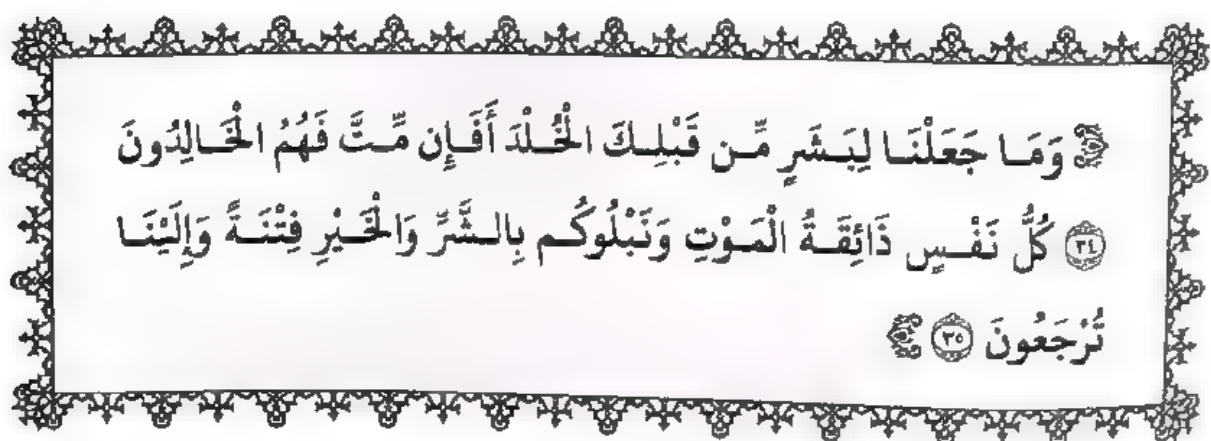 ﴿ وَمَا جَعَلْنَا لِبَشَرٍ مِّن قَبْلِكَ الْخُلْدَ أَفَإِن مِّتَّ فَهُمُ الْخَالِدُونَ
۝٣٤ كُلُّ نَفْسٍ ذَائِقَةُ الْمَوْتِ وَنَبْلُوكُم بِالشَّرِّ وَالْخَيْرِ فِتْنَةً وَإِلَيْنَا
تُرْجَعُونَ ۝٣٥ ﴾